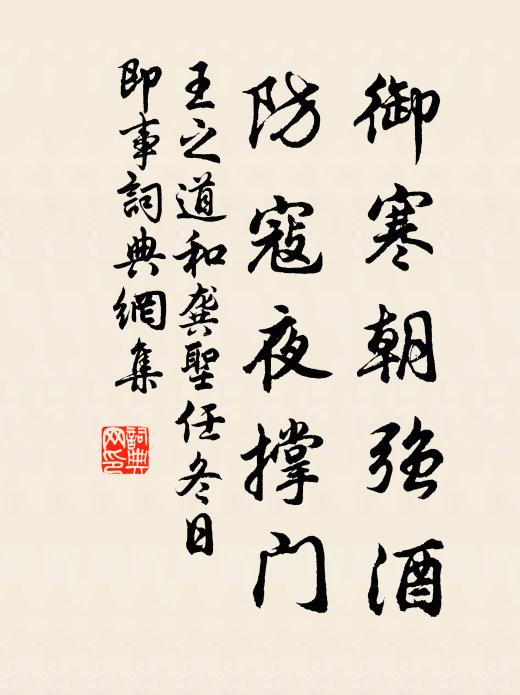 御寒朝强酒
防寇夜撑门
王之道和龚聖任冬日
即事詞典網集
詞典
网印